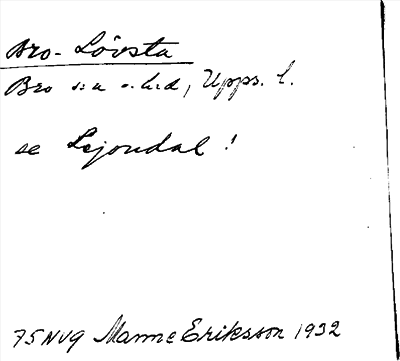 Bro-Lövsta
Bro s:n o. h:d, Upps. l.
se Lejondal!
75NV9 Manne Eriksson 1932